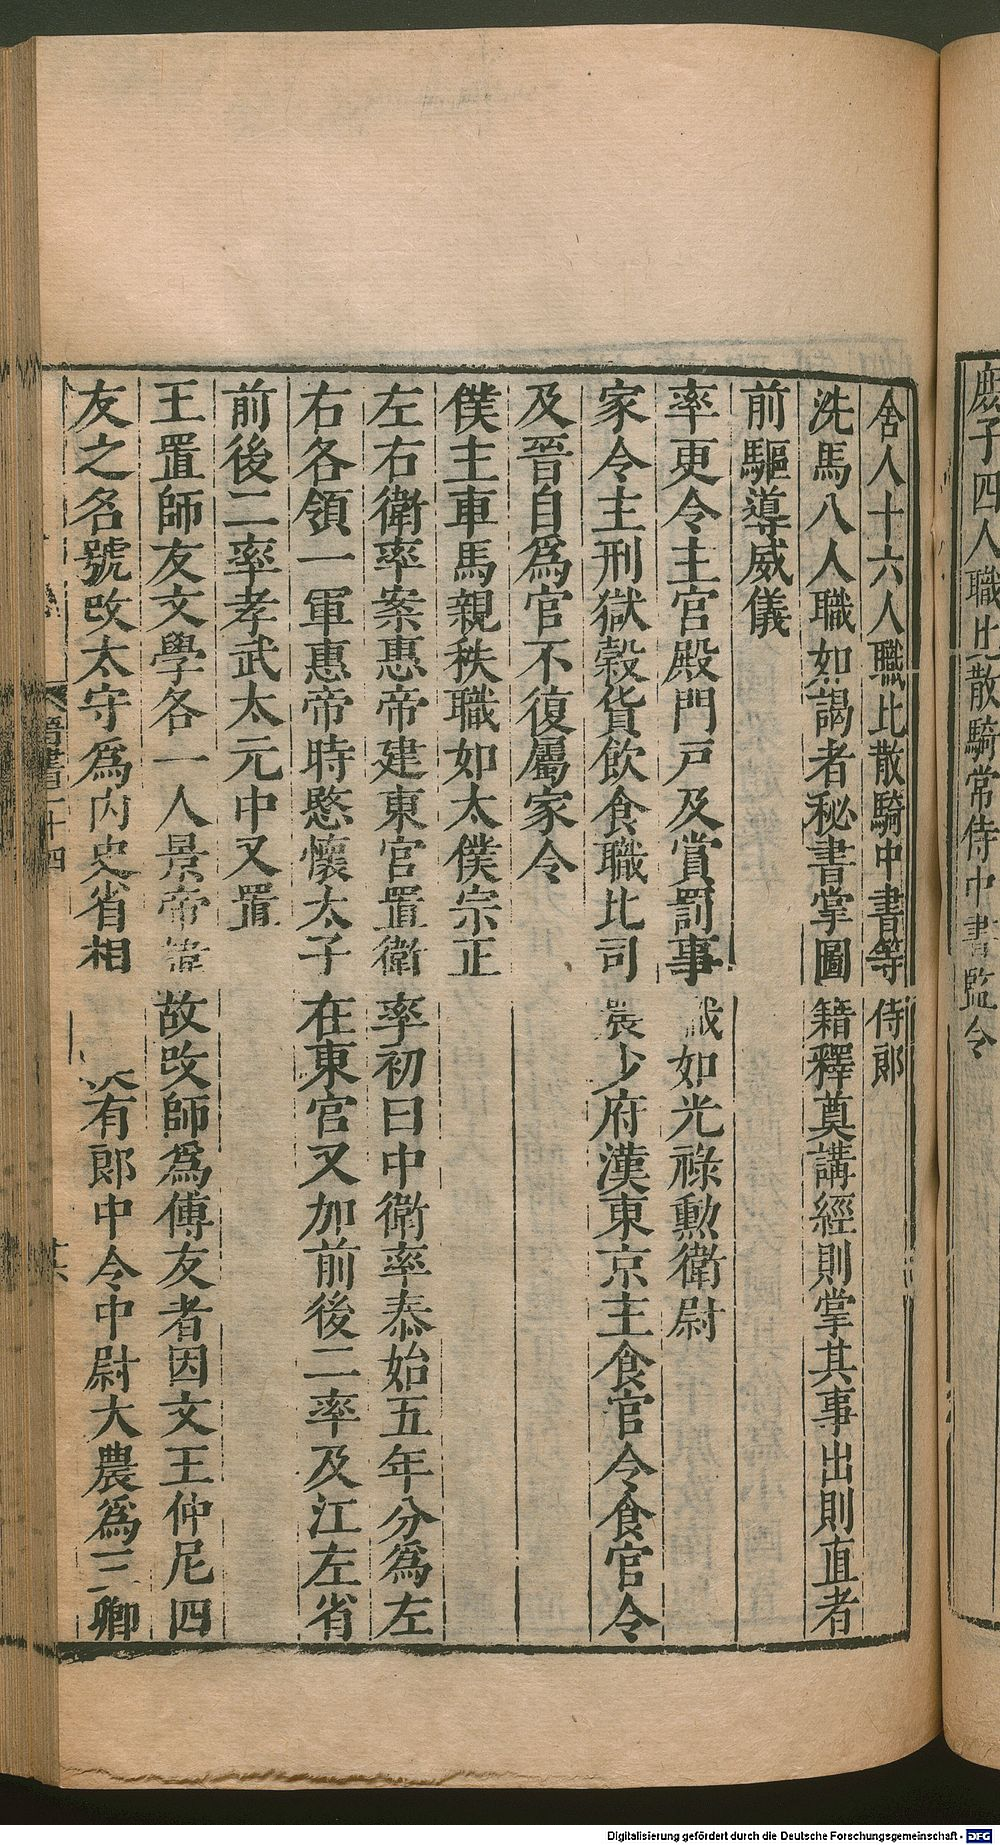 庶子四人職比散騎常侍中書監令
舍人十六人職比散騎中書等侍郎
洗馬八人職如謁者秘書掌圖籍釋奠講經則掌其事出則直者
前驅導威儀
率更令主宮殿門戸及賞罰事職如光祿勳衛尉
家令主刑獄穀貨飲食職比司農少府漢東京主食官令食官令
及晉自爲官不復屬家令
僕主車馬親秩職如太僕宗正
左右衛率案惠帝建東宮置衛率初曰中衛率泰始五年分爲左
右各領一軍惠帝時愍懷太子在東宮又加前後二率及江左省
前後二率孝武太元中又置
王置師友文學各一人景帝諱故改師爲傅友者因文王仲尼四
友之名號改太守爲內史省相 有郎中令中尉大農爲三卿
晉書二十四
廿六
Digitalisierung gefördert durch die Deutsche Forschungsgemeinschaft - DFG